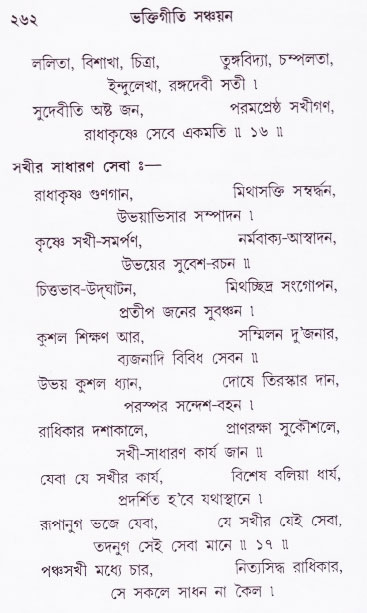 ২৬২ ভক্তিগীতি সঞ্চয়ন
ললিতা, বিশাখা, চিত্রা, তুঙ্গবিদ্যা, চম্পলতা,
ইন্দুলেখা, রঙ্গদেবী সতী ৷
সুদেবীতি অষ্ট জন, পরমপ্রেষ্ঠ সখীগণ,
রাধাকৃষ্ণে সেবে একমতি ৷৷ ১৬ ৷৷
সখীর সাধারণ সেবা ঃ—
রাধাকৃষ্ণ গুণগান, মিথাসক্তি সম্বর্দ্ধন,
উভয়াভিসার সম্পাদন ৷
কৃষ্ণে সখী-সমর্পণ, নর্মবাক্য-আস্বাদন,
উভয়ের সুবেশ-রচন ৷৷
চিত্তভাব-উদ্‌ঘাটন, মিথচ্ছিদ্র সংগোপন,
প্রতীপ জনের সুবঞ্চন ৷
কুশল শিক্ষণ আর, সম্মিলন দু'জনার,
ব্যজনাদি বিবিধ সেবন ৷৷
উভয় কুশল ধ্যান, দোষে তিরস্কার দান,
পরস্পর সন্দেশ-বহন ৷
রাধিকার দশাকালে, প্রাণরক্ষা সুকৌশলে,
সখী-সাধারণ কার্য জান ৷৷
যেবা যে সখীর কার্য, বিশেষ বলিয়া ধার্য,
প্রদর্শিত হ'বে যথাস্থানে ৷
রূপানুগ ভজে যেবা, যে সখীর যেই সেবা,
তদনুগ সেই সেবা মানে ৷৷ ১৭ ৷৷
পঞ্চসখী মধ্যে চার, নিত্যসিদ্ধ রাধিকার,
সে সকলে সাধন না কৈল ৷